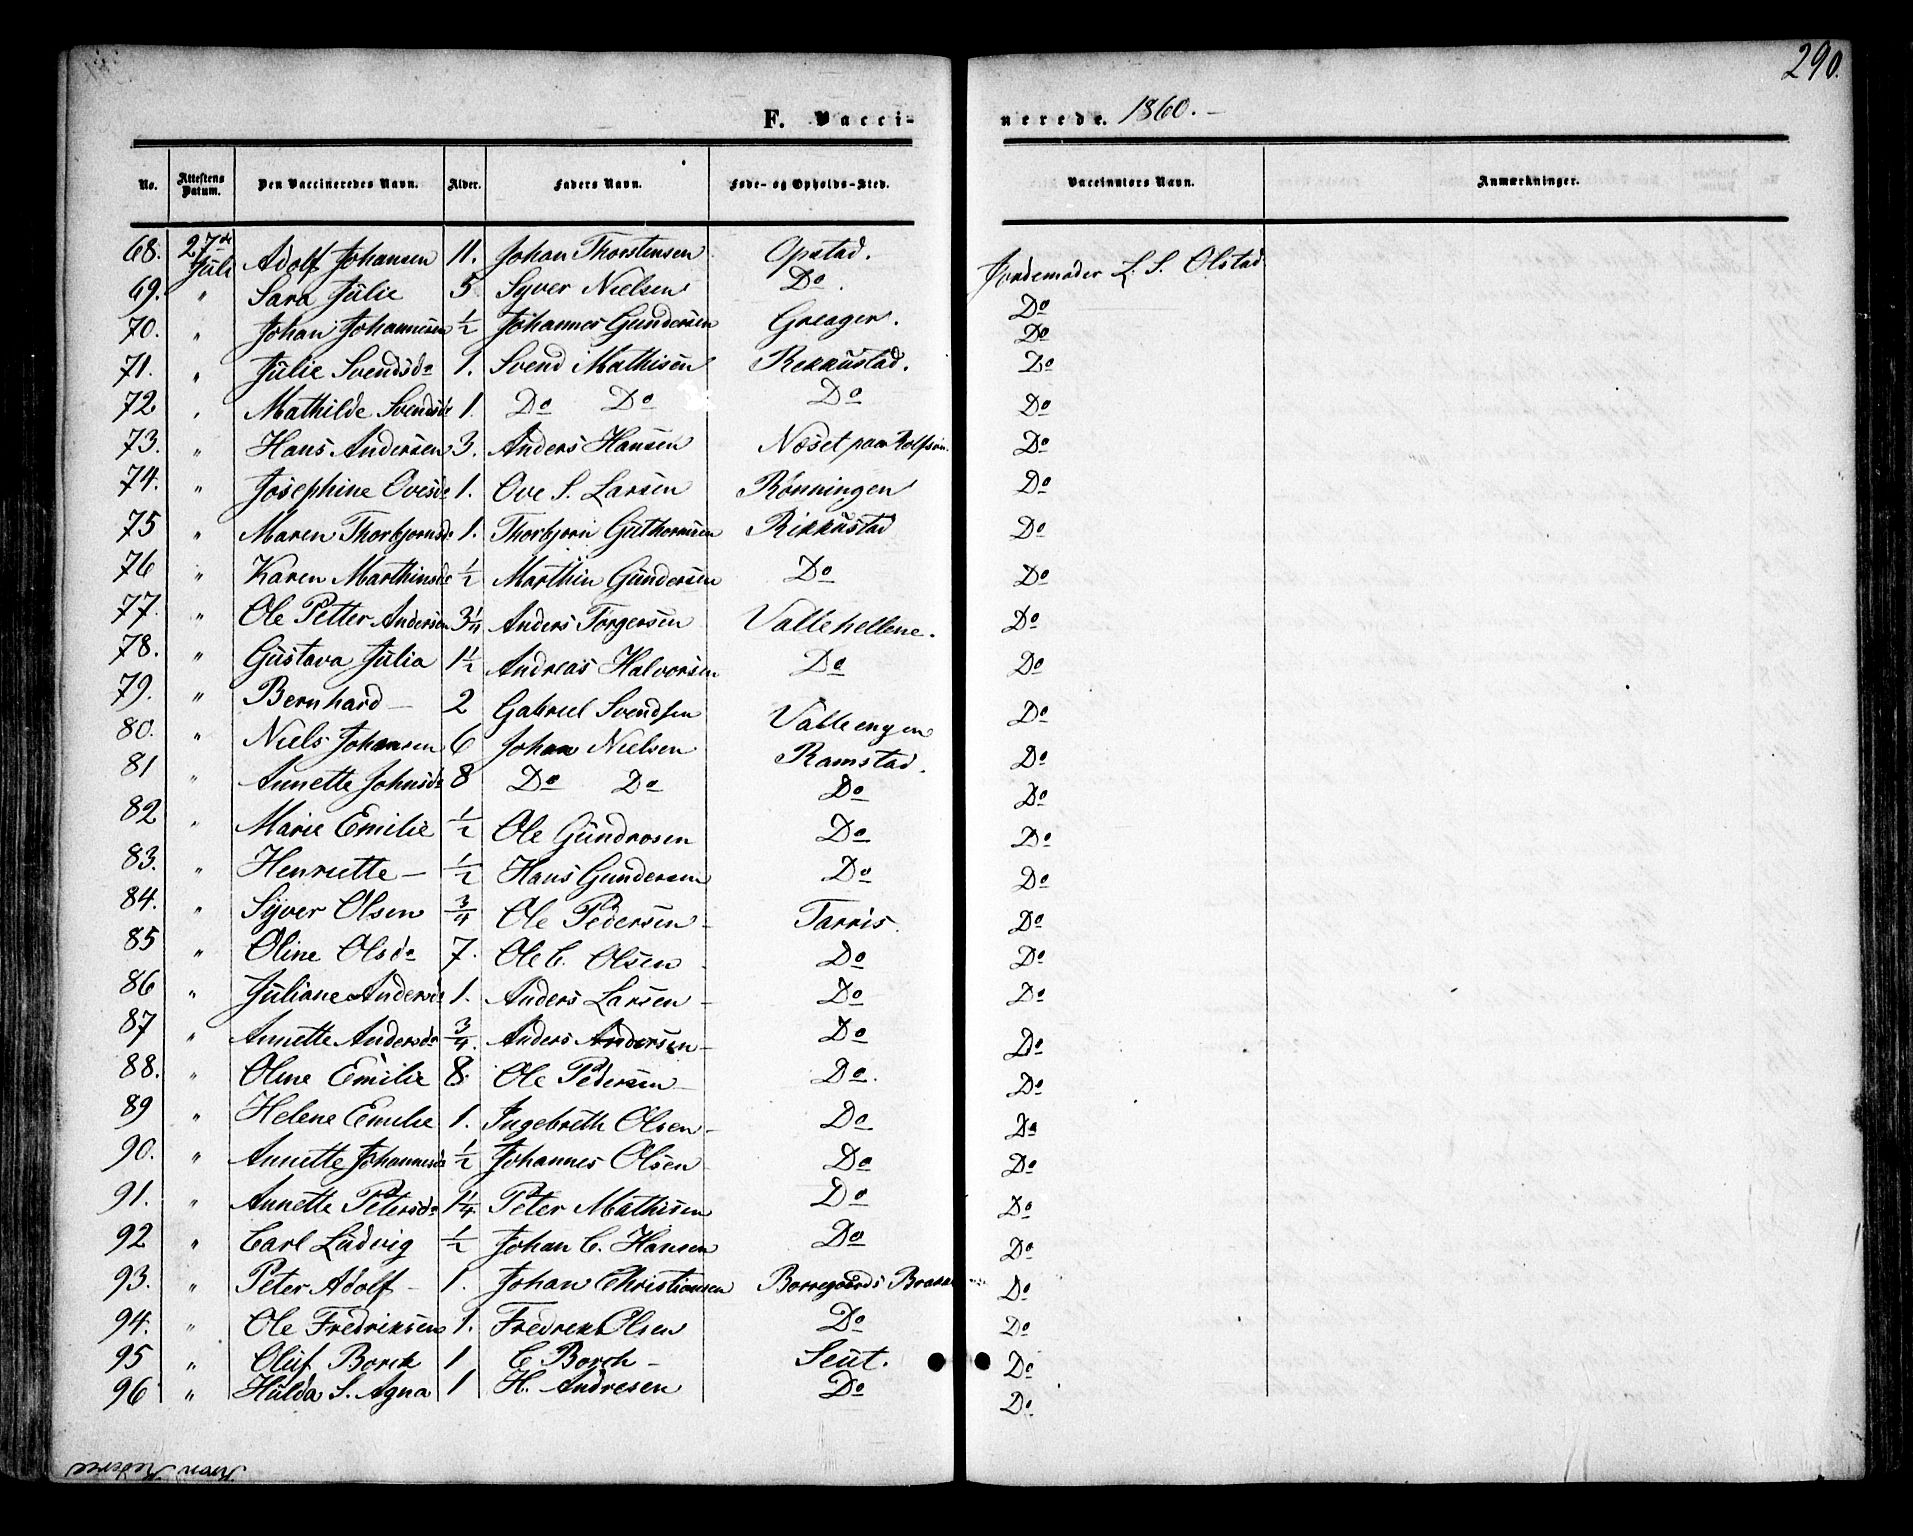 290.
F. Vaccinerede. 1860.-
No. Attestens Datum. Den Vaccineredes Navn. Alder. Faders Navn. Føde- og Opholds-Sted. Vaccinators Navn. Anmærkninger.
68. 27de Juli Adolf Johansen 11. Johan Thorstensen Opstad. Jordemoder L. S. Olstad
69. " Sara Julie 5 Syver Nielsen Do. Do
70. " Johan Johannesen ½ Johannes Gundersen Greager. Do
71. " Julie Svendsda 1. Svend Mathisen Rekkustad. Do
72. " Mathilde Svendsda 1. Do Do Do Do
73. " Hans Andersen 3. Anders Hansen Næset paa Rolfsøen. Do
74. " Josephine Ovesda 1. Ove S. Larsen Rønningen Do
75 " Maren Thorbjørnsda 1. Thorbjørn Guthormsen Rikkustad Do
76 " Karen Marthinsda ½ Marthin Gundersen Do Do
77. " Ole Petter Andersen 3¼ Anders Torgersen Vallehellene. Do
78. " Gustava Julia 1½ Andreas Halvorsen Do Do
79. " Bernhard - 2 Gabriel Svendsen Valleengen Do
80. " Niels Johansen 6 Johan Nielsen Ramstad. Do
81 " Annette Johnsda 8 Do Do Do Do
82 " Marie Emilie ½ Ole Gundrosen Do Do
83. " Henriette - ½ Hans Gundersen Do Do
84. " Syver Olsen ¾ Ole Pedersen - Tarris. Do
85 " Oline Olsda 7. Ole C. Olsen - Do Do
86 " Juliane Andersda 1. Anders Larsen - Do Do
87 " Annette Andersda ¾. Anders Andersen - Do Do
88. " Oline Emilie 8. Ole Pedersen - Do. Do
89 " Helene Emilie 1. Ingebreth Olsen - Do Do
90. " Annette Johannesda ½ Johannes Olsen - Do Do
91. " Annette Petersda 1¼ Peter Mathisen Do Do
92 " Carl Ludvig ½ Johan C. Hansen Do Do
93. " Peter Adolf - 1. Johan Christiansen Borregaards Do
94. " Ole Fredriksen 1. Fredrek Olsen Do Do
95 " Oluf Borch 1 C Borch - Seut. Do
96 " Hulda S. Agna 1 H. Andresen Do Do